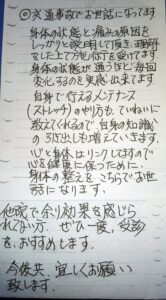 ◎交通事故でお世話になってます
身体の状態と痛みの原因を
しっかりと説明して頂き、理解
をした上で施術を受けてます。
身体の状態が通うほど、毎回
変化するのを実感出来てます
自身で行えるメンテナンス
(ストレッチ)のやり方も、ていねいに
教えてくれるので自身の知識
の引き出しも増えていきます。
心と身体はリンクしますので
心も健康に保つために、
身体の整えをこちらでお世
話になります。
他院で余り効果を感じら
れない方、ぜひ一度、受診
を、おすすめします。
今後共、宜しくお願い
致します。